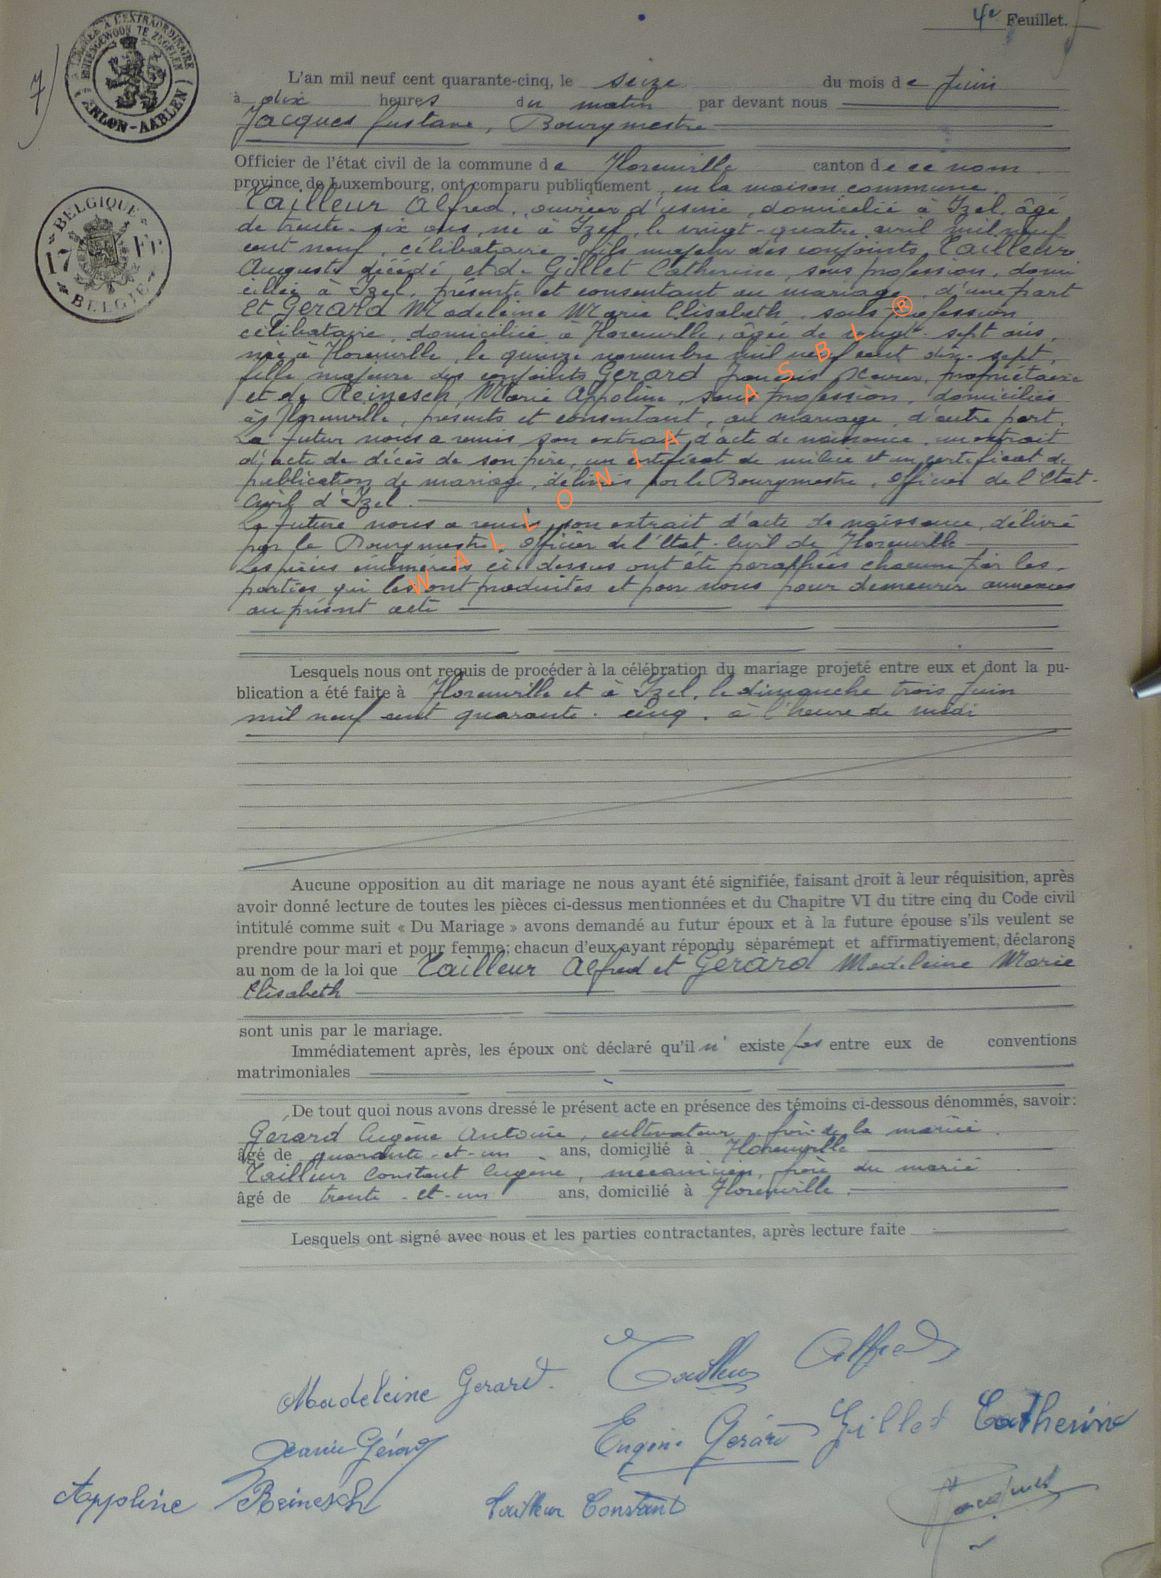 4e Feuillet.
7)
TIMBRÉ À L'EXTRAORDINAIRE
BUITENGEWOON TE ZEGELEN
ARLON-AARLEN
BELGIQUE
BELGIË
L'an mil neuf cent quarante-cinq, le seize du mois de Juin
à dix heures du matin par devant nous
Jacques Gustave, Bourgmestre
Officier de l'état civil de la commune de Florenville canton de ce nom
province de Luxembourg, ont comparu publiquement en la maison commune.
Tailleur Alfred, ouvrier d'usine, domicilié à Izel, âgé
de trente-six ans, né à Izel, le vingt-quatre avril mil neuf
cent neuf, célibataire, fils majeur des conjoints Tailleur
Auguste décédé, et de Gillet Catherine, sans profession, domi
ciliée à Izel, présente et consentant au mariage, d'une part
Et Gerard Madeleine Marie Elisabeth, sans profession
célibataire, domiciliée à Florenville, âgée de vingt-sept ans,
née à Florenville, le quinze novembre mil neuf cent dix-sept,
fille majeure des conjoints Gerard François Xavier, propriétaire
et de Reinesch Marie Appoline, sans profession, domiciliés
à Florenville, présents et consentant, au mariage, d'autre part.
Le futur nous a remis son extrait d'acte de naissance, un extrait
d'acte de décès de son père, un certificat de milice et un certificat de
publication de mariage, délivrés par le Bourgmestre, Officier de l'Etat-
Civil d'Izel.
La future nous a remis son extrait d'acte de naissance, délivré
par le Bourgmestre, Officier de l'Etat-Civil de Florenville
Les pièces énumérées ci-dessus ont été paraphées chacune par les
parties qui les ont produites et par nous pour demeurer annexées
au présent acte
WALLONIA ASBL ®
Lesquels nous ont requis de procéder à la célébration du mariage projeté entre eux et dont la pu-
blication a été faite à Florenville et à Izel, le dimanche trois Juin
mil neuf cent quarante-cinq, à l'heure de midi
Aucune opposition au dit mariage ne nous ayant été signifiée, faisant droit à leur réquisition, après
avoir donné lecture de toutes les pièces ci-dessus mentionnées et du Chapitre VI du titre cinq du Code civil
intitulé comme suit « Du Mariage » avons demandé au futur époux et à la future épouse s'ils veulent se
prendre pour mari et pour femme; chacun d'eux ayant répondu séparément et affirmativement, déclarons
au nom de la loi que Tailleur Alfred et Gérard Madeleine Marie
Elisabeth
sont unis par le mariage.
Immédiatement après, les époux ont déclaré qu'il n' existe pas entre eux de conventions
matrimoniales
De tout quoi nous avons dressé le présent acte en présence des témoins ci-dessous dénommés, savoir:
Gérard Eugène Antoine, cultivateur, frère de la mariée.
âgé de quarante-et-un ans, domicilié à Florenville
Tailleur Constant Eugène, mécanicien, frère du marié
âgé de trente-et-un ans, domicilié à Florenville.
Lesquels ont signé avec nous et les parties contractantes, après lecture faite
Madeleine Gerard. Tailleur Alfred
Gérard Eugène Gérard Gillet Catherine
Appoline Reinesch Tailleur Constant Jacques